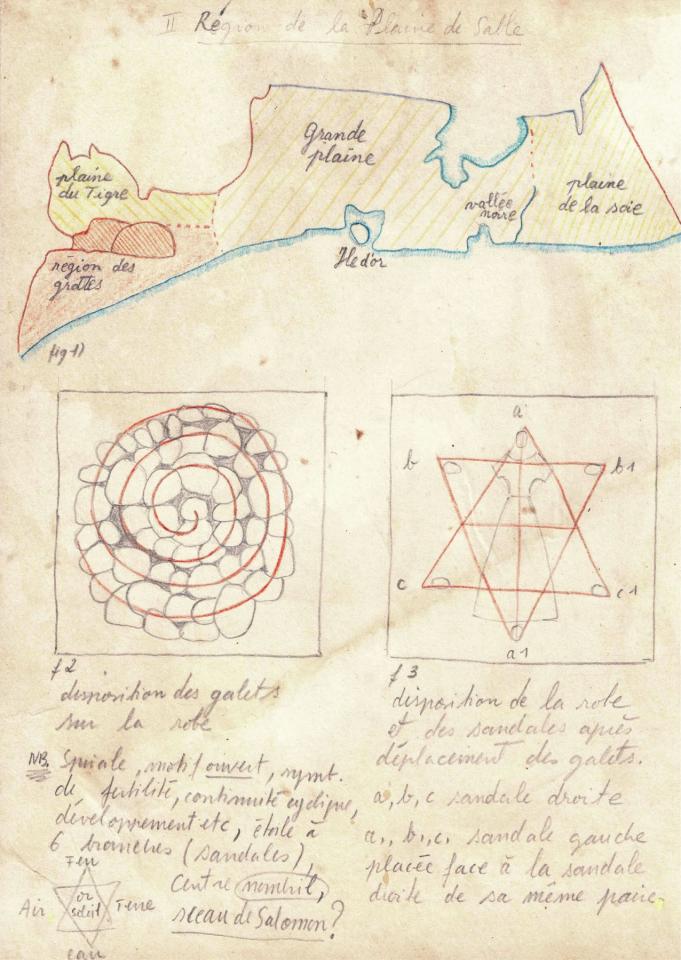 II Région de la Plaine de Sable
Grande
plaine
plaine
du Tigre
vallée
noire
plaine
de la soie
Ile d'or
région des
grottes
fig 1)
a
b
b1
c
c1
a1
f 2
disposition des galets
sur la robe
f 3
disposition de la robe
et des sandales après
déplacement des galets.
a, b, c sandale droite
a1, b1, c1 sandale gauche
placée face à la sandale
droite de sa même paire.
NB. Spirale, motif ouvert, symb.
de fertilité, continuité cyclique,
développement etc, étoile à
6 branches (sandales),
centre nombril,
sceau de Salomon?
Feu
Air
or
soleil
Terre
eau